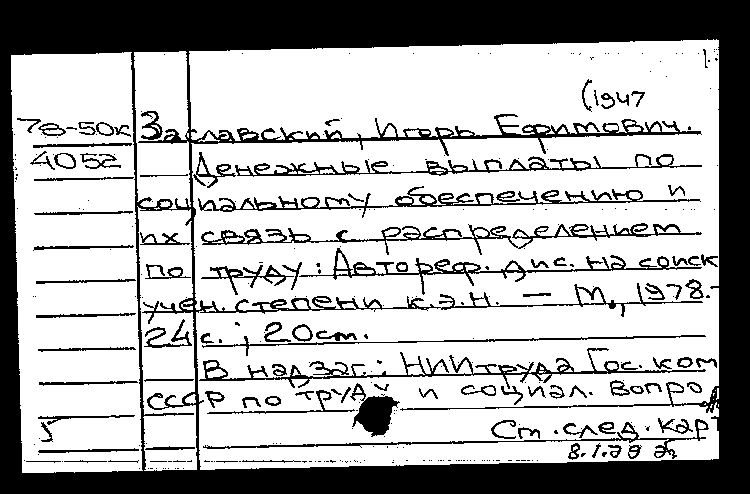 (1947
78-50к Заславский, Игорь Ефимович.
4052 Денежные выплаты по
социальному обеспечению и
их связь с распределением
по труду: Автореф. дис. на соиск
учен. степени к.э.н. — М., 1978.-
24 с.; 20 см.
В надзаг.: НИИ труда Гос. ком
СССР по труду и социал. вопро
5 См. след. карт